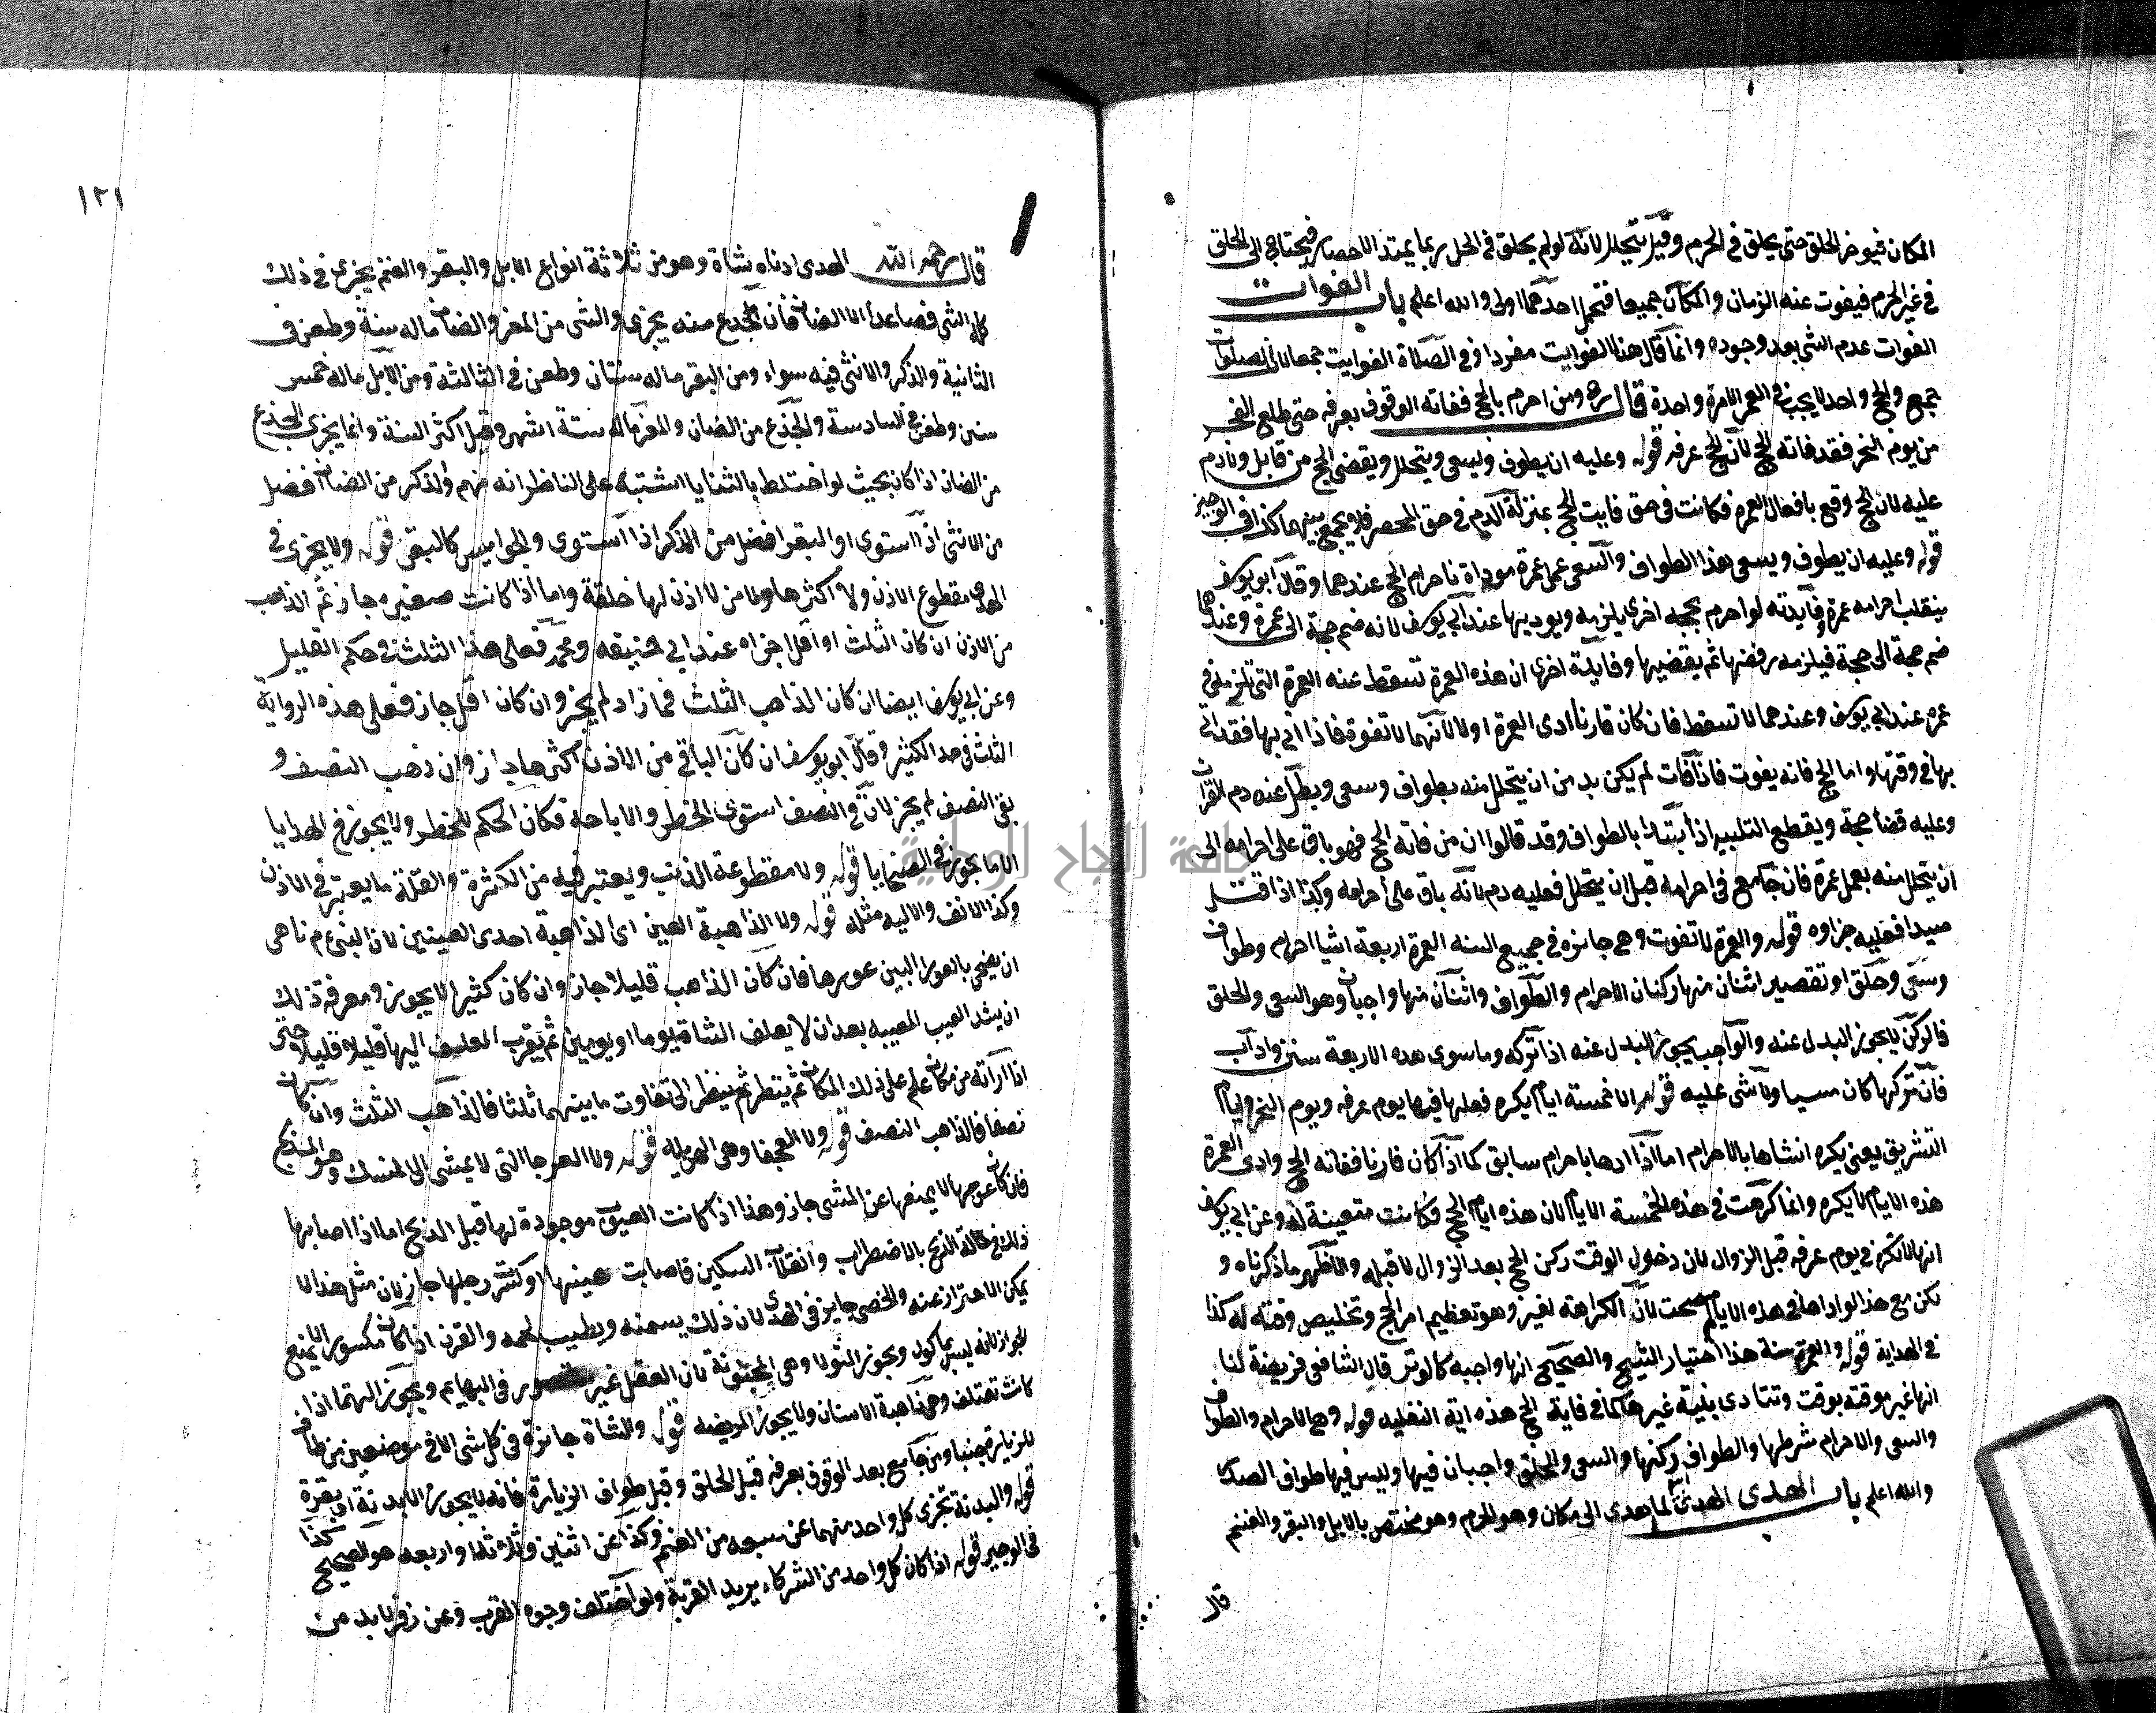 المكان فيوخر الحلق حتى يحلق في الحرم وقيل يتحلل لانه لو لم يحلق في الحل ربما يمتد الاحصار فيحتاج الى الحلق
في غير الحرم فيفوت عنه الزمان والمكان جميعا فتحمل احدهما اولى والله اعلم باب الفوات
الفوات عدم الشي بعد وجوده وانما قال هنا الفوايت مفردا وفي الصلاة الفوايت جمعا لان الصلوات
جمع والحج واحد لا يجب في العمر الا مرة واحدة قال ره ومن احرم بالحج ففاته الوقوف بعرفه حتى طلع الفجر
من يوم النحر فقد فاته الحج لان الحج عرفه قوله وعليه ان يطوف ويسعى ويتحلل ويقضي الحج من قابل ولا دم
عليه لان الحج وقع بافعال العمره فكانت في حق فايت الحج بمنزلة الدم في حق المحصر فلا يجمع بينهما كذا في الوجيز
قوله وعليه ان يطوف ويسعى هذا الطواف والسعي عمل عمرة موداة باحرام الحج عندهما وقال ابو يوسف
ينقلب احرامه عمرة وفايدته لو احرم بحجه اخرى يلزمه ويوديها عند ابي يوسف لانه ضم حجة الى عمرة وعندهما
ضم حجة الى حجة فيلزمه رفضها ثم يقضيها وفايدة اخرى ان هذه العمرة تسقط عنه العمرة التي تلزمه في
عمره عند ابي يوسف وعندهما لا تسقط فان كان قارنا ادى العمرة اولا لانهما لا تفوته فاذا اتى بها فقد اتى
بها في وقتها واما الحج فانه يفوت فاذا فات لم يكن بد من ان يتحلل منه بطواف وسعي وبطل عنه دم القران
وعليه قضا حجة ويقطع التلبيه اذا ابتدا بالطواف وقد قالوا ان من فاته الحج فهو باق على احرامه الى
ان يتحلل منه بعمل عمرة فان جامع في احرامه قبل ان يتحلل فعليه دم لانه باق على احرامه وكذا اذا قتل
صيدا فعليه جزاوه قوله والعمرة لا تفوت وهي جايزه في جميع السنه العمرة اربعة اشيا احرام وطواف
وسعي وحلق او تقصير اثنان منها ركنان الاحرام والطواف واثنان منها واجبان وهو السعي والحلق
فالركن لا يجوز البدل عنه والواجب يجوز البدل عنه اذا تركه وما سوى هذه الاربعة سنن واداب
فان تركها كان مسيا ولا شي عليه قوله الا خمسة ايام يكره فعلها فيها يوم عرفه ويوم النحر وايام
التشريق يعني يكره انشاها بالاحرام اما اذا اداها باحرام سابق كما اذا كان قارنا ففاته الحج وادى العمرة
هذه الايام لا يكره وانما كرهت في هذه الخمسة الايام لان هذه ايام الحج فكانت متعينة له وعن ابي يوسف
انها لا تكره في يوم عرفه قبل الزوال لان دخول الوقت ركن الحج بعد الزوال لا قبله والاظهر ما ذكرناه و
لكن مع هذا لو اداها في هذه الايام صحت لان الكراهة لغير وهو تعظيم امر الحج وتخليص وقته له كذا
في الهداية قوله والعمرة سنة هذا اختيار الشيخ والصحيح انها واجبه كالوتر قال الشافعي فريضة لنا
انها غير موقته بوقت وتتادى بنية غيرها كما في فاية الحج هذه اية النفليه قوله وهي الاحرام والطواف
والسعي والاحرام شرطها والطواف ركنها والسعي والحلق واجبان فيها وليس فيها طواف الصدر
والله اعلم باب الهدى الهدي لما يهدى الى مكان وهو الحرم وهو مختص بالابل والبقر والغنم
قال
١٢١
قال رحمه الله الهدى ادناه شاة وهو من ثلاثة انواع الابل والبقر والغنم يجزى في ذلك
كله الثني فصاعدا الا الضان فان الجذع منه يجزى والثني من المعز والضان ماله سنة وطعن في
الثانية والذكر والانثى فيه سواء ومن البقر ماله سنتان وطعن في الثالثة ومن الابل ماله خمس
سنين وطعن في السادسة والجذع من الضان والمعز ماله ستة اشهر وقيل اكثر السنة وانما يجزى الجذع
من الضان اذا كان بحيث لو اختلط بالثنايا اشتبه على الناظر انه منهم والذكر من الضان افضل
من الانثى اذا استوى او البقر افضل من الذكر اذا استوى والجواميس كالبقر قوله ولا يجزى في
الهدى مقطوع الاذن ولا اكثرها ولا من لا اذن لها خلقة واما اذا كانت صغيره جاز ثم الذاهب
من الاذن ان كان الثلث او اقل اجزاه عند ابي حنيفه ومحمد فعلى هذا الثلث في حكم القليل
وعن ابي يوسف ايضا ان كان الذاهب الثلث فما زاد لم يجز وان كان اقل جاز فعلى هذه الرواية
الثلث في حد الكثير وقال ابو يوسف ان كان الباقي من الاذن اكثرها جاز وان ذهب النصف و
بقي النصف لم يجز لان في النصف استوى الحظر والاباحة فكان الحكم للحظر ولا يجوز في الهدايا
الا ما يجوز في الضحايا قوله ولا مقطوعة الذنب ويعتبر فيه من الكثرة والقلة ما يعتبر في الاذن
وكذا الانف والاليه مثله قوله ولا الذاهبة العين اي الذاهبة احدى العينين لان النبي عم ناهى
ان يضحى بالعورا البين عورها فان كان الذاهب قليلا جاز وان كان كثيرا لا يجوز ومعرفة ذلك
ان يشد العيب المعيبه بعد ان لا يعلف الشاة يوما او يومين ثم يقرب العلف اليها قليلا قليلا حتى
اذا راته من مكان علم على ذلك المكان ثم ينتظر ثم ينظر الى تفاوت ما بينهما ثلثا فالذاهب الثلث وان كان
نصفا فالذاهب النصف قوله ولا العجفا وهي الهزيله قوله ولا العرجا التي لا تمشي الى المنسك وهو المذبح
فان كان عرجها لا يمنعها عن المشي جاز وهذا اذا كانت العيوب موجودة لها قبل الذبح اما اذا اصابها
ذلك في حالة الذبح بالاضطراب وانفلات السكين فاصابت عينها او كسر رجلها جاز لان مثل هذا لا
يمكن الاحتراز عنه والخصي جايز في الهدى لان ذلك يسمنه ويطيب لحمه والقرن اذا كان مكسورا لا يمنع
الجواز لانه ليس بماكول ويجوز الثولا وهي المجنونة لان العقل غير مقصور في البهايم ويجوز الهتما اذا
كانت تعتلف وهي ذاهبة الاسنان ولا يجوز المريضه قوله والشاة جايزة في كل شي الا في موضعين من طاف
للزيارة جنبا ومن جامع بعد الوقوف بعرفه قبل الحلق وقبل طواف الزيارة فانه لا يجوز الا بدنة او بقرة
قوله والبدنة تجزى كل واحد منهما عن سبعه من الغنم وكذا عن اثنين وثلاثه واربعه هو الصحيح كذا
في الوجيز قوله اذا كان كل واحد من الشركاء يريد القربة ولو اختلف وجوه القرب وعن زفر لا بد من
جامعة النجاح الوطنية